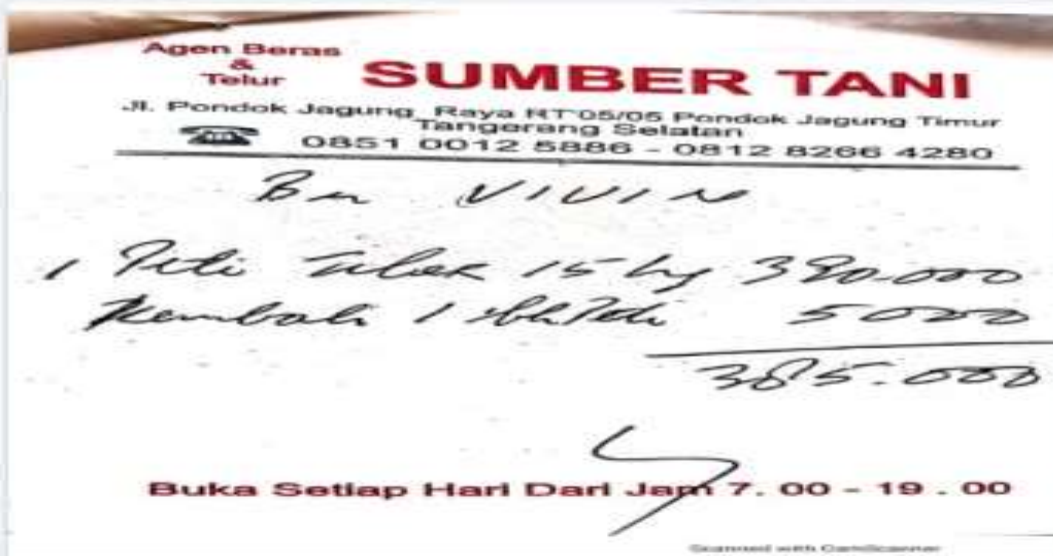 Agen Beras
&
Telur
SUMBER TANI
Jl. Pondok Jagung Raya RT 05/05 Pondok Jagung Timur
Tangerang Selatan
0851 0012 5886 - 0812 8266 4280
Bu VIVIN
1 Peti 15 kg 390.000
Kembali 1 Peti 5000
385.000
Buka Setiap Hari Dari Jam 7. 00 - 19 . 00
Scanned with CamScanner